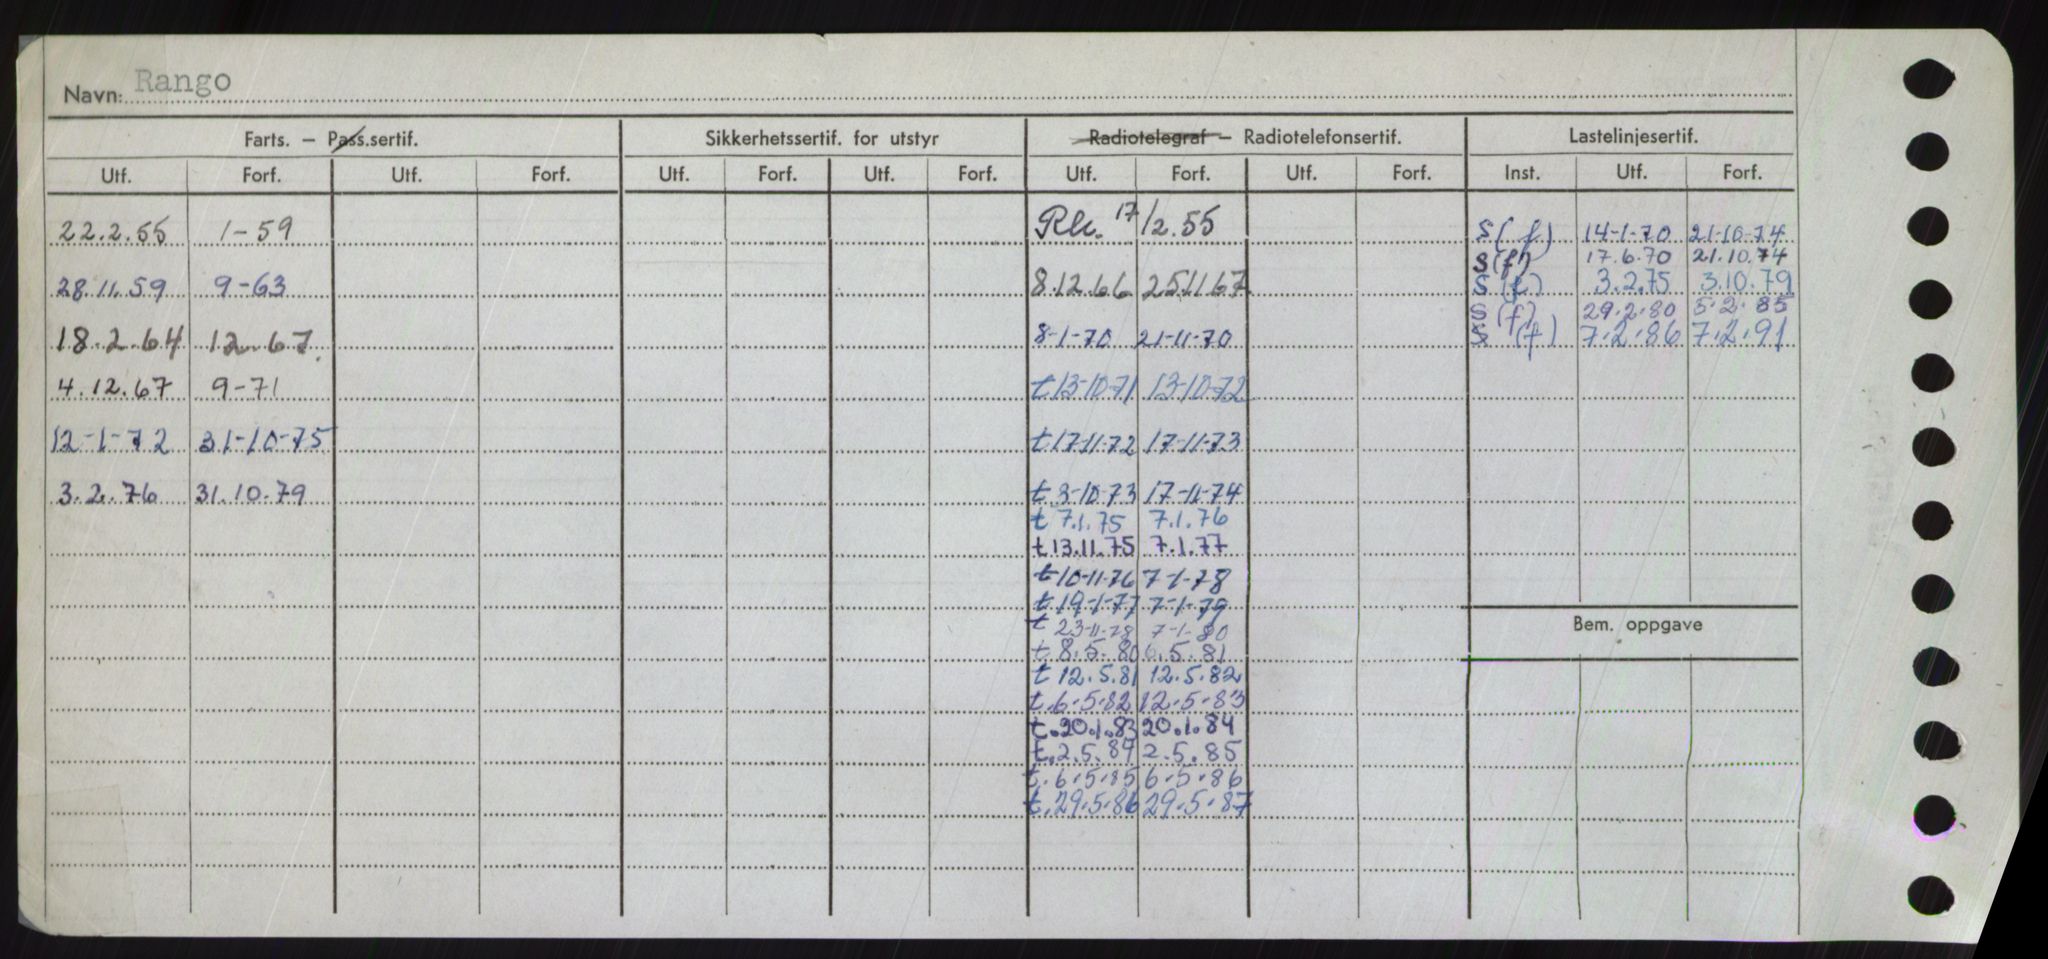 Navn: Rango
Farts. – Pass.sertif. Sikkerhetssertif. for utstyr Radiotelegraf – Radiotelefonsertif. Lastelinjesertif.
Utf. Forf. Utf. Forf. Utf. Forf. Utf. Forf. Utf. Forf. Utf. Forf. Inst. Utf. Forf.
22.2.55 1-59 17/2.55 S(f) 14-1-70 21-10-74
S(f) 17.6.70 21.10.74
28.11.59 9-63 8.12.66 25.11.67 S(f) 3.2.75 3.10.79
S(f) 29.2.80 5.2.85
18.2.64 12.67. 8-1-70 21-11-70 S (f) 7.2.86 7.2.91
4.12.67 9-71 t 13-10-71 13-10-72
12-1-72 31-10-75 t 17-11-72 17-11-73
3.2.76 31.10.79 t 3-10-73 17-11-74
t 7.1.75 7.1.76
t 13.11.75 7.1.77
t 10-11-76 7-1-78
t 19-1-77 7-1-79
t 23-11-78 7-1-80
t 8.5.80 6.5.81
t 12.5.81 12.5.82
t.6.5.82 12.5.83
t.20.1.83 20.1.84
t.2.5.84 2.5.85
t.6.5.85 6.5.86
t.29.5.86 29.5.87
Bem. oppgave